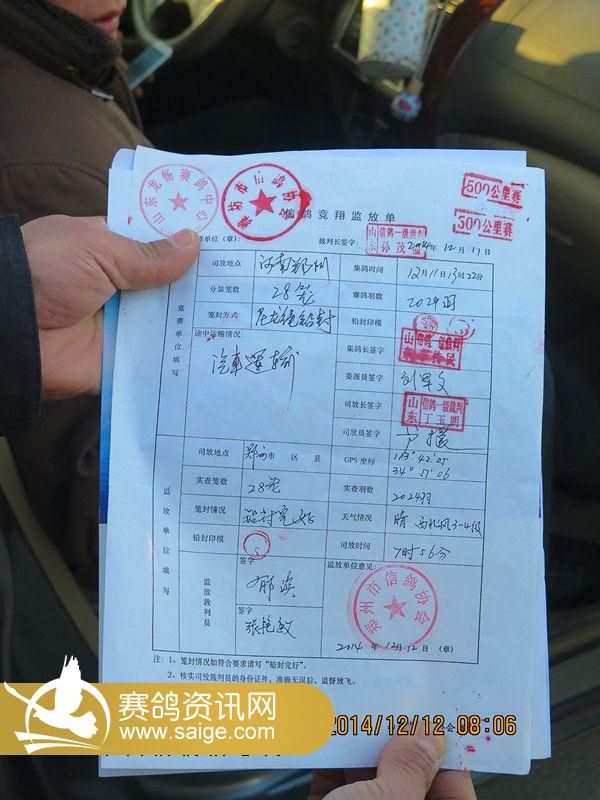 山东龙翥赛鸽中心
潍坊市信鸽协会
500公里赛
500公里赛
信鸽竞翔监放单
山东 信鸽一级裁判 孙茂福
单位(章): 裁判长签字: 2014年12月17日
竞赛单位填写
司放地点 河南郑州 集鸽时间 12月11日13时22分
分装笼数 28笼 赛鸽羽数 2024羽
笼封方式 尼龙绳铅封 铅封印模
途中运输情况: 集鸽长签字
汽车运输
委派员签字 刘军文
司放长签字 山东 信鸽一级裁判 丁玉明
司放员签字
监放单位填写
司放地点 郑州市 区 县 GPS 坐标 113°42.05 34°57.06
实查笼数 28笼 实查羽数 2024羽
笼封情况 铅封完好 天气情况 晴 西北风3-4级
铅封印模 司放时间 7时56分
监放裁判员
签字 郁滨
签字 张艳敏
监放单位意见:
郑州市信鸽协会
2014年12月12日(章)
注: 1、笼封情况如符合要求请写“铅封完好”。
2、核实司放裁判员的身份证件,准确无误后,监督放飞。
赛鸽资讯网
www.saige.com
2014/12/12 08:06